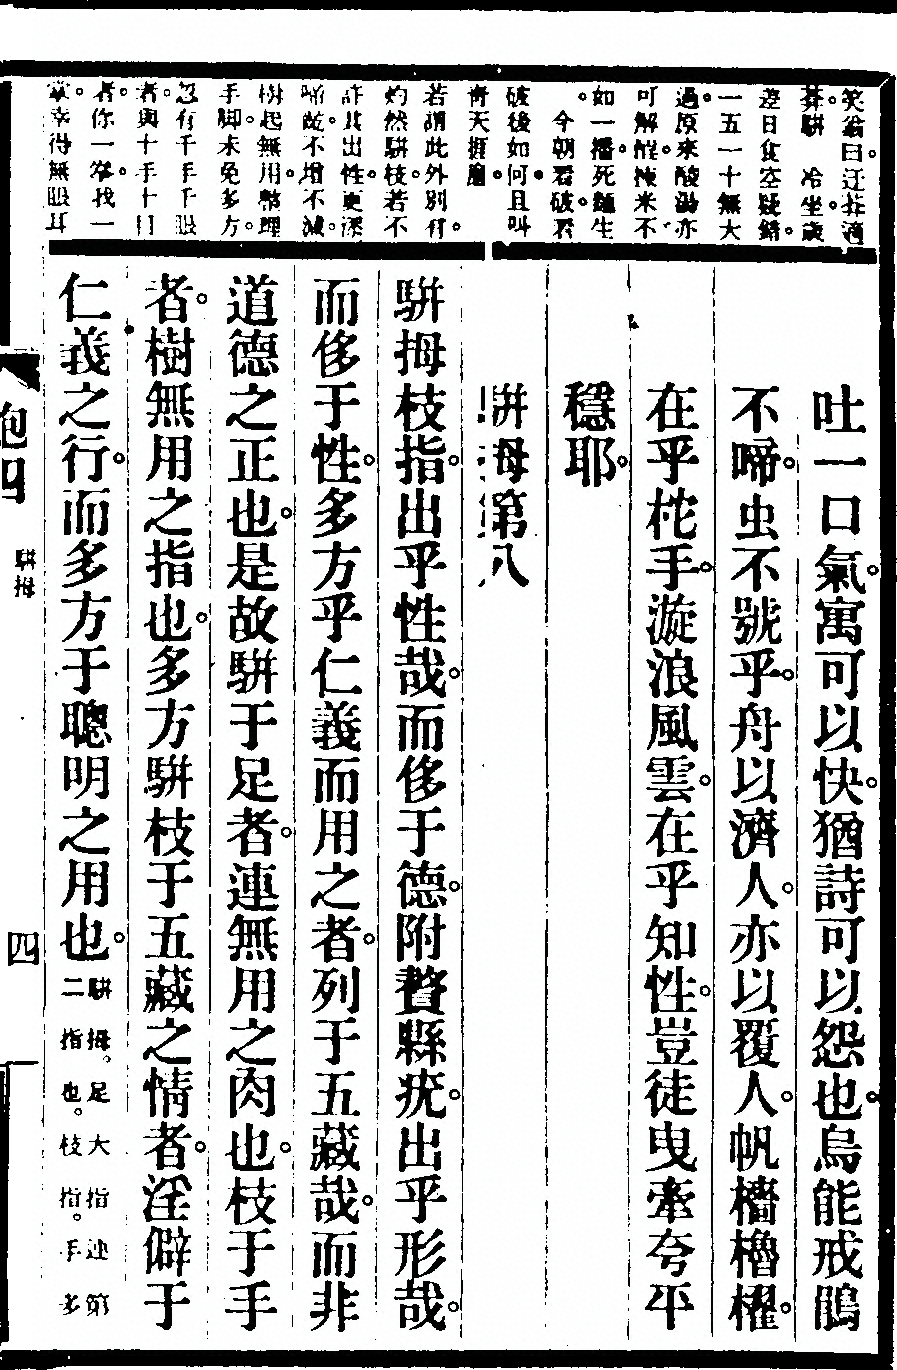 笑翁曰。迂莽適
莽駢 冷坐歲
差日食空疑錯
一五一十無大
過。原來酸湯亦
可解酲。揀來不
如一播。死麵生
。今朝看破。看
破後如何。且叫
青天捱
若謂此外別有。
灼然駢枝。若不
許其出性。更深
不增不減。
樹起無用 理
手脚。未免多方。
忽有千手千眼
者。與十手十目
者。你一拏。找一
掌。幸得無眼耳
吐一口氣。寓可以快。猶詩可以怨也。烏能戒鵑
不啼。虫不號乎。舟以濟人。亦以覆人。帆檣櫓櫂。
在乎柁手。漩浪風雲。在乎知性。豈徒曳牽夸平
穩耶。
駢拇第八
駢拇枝指。出乎性哉。而侈于德。附贅縣疣。出乎形哉。
而侈于性。多方乎仁義而用之者。列于五藏哉。而非
道德之正也。是故駢于足者。連無用之肉也。枝于手
者。樹無用之指也。多方駢枝于五藏之情者。淫僻于
仁義之行。而多方于聰明之用也。駢拇。足大指連第
二指也。枝指。手多
炮四
駢拇
四